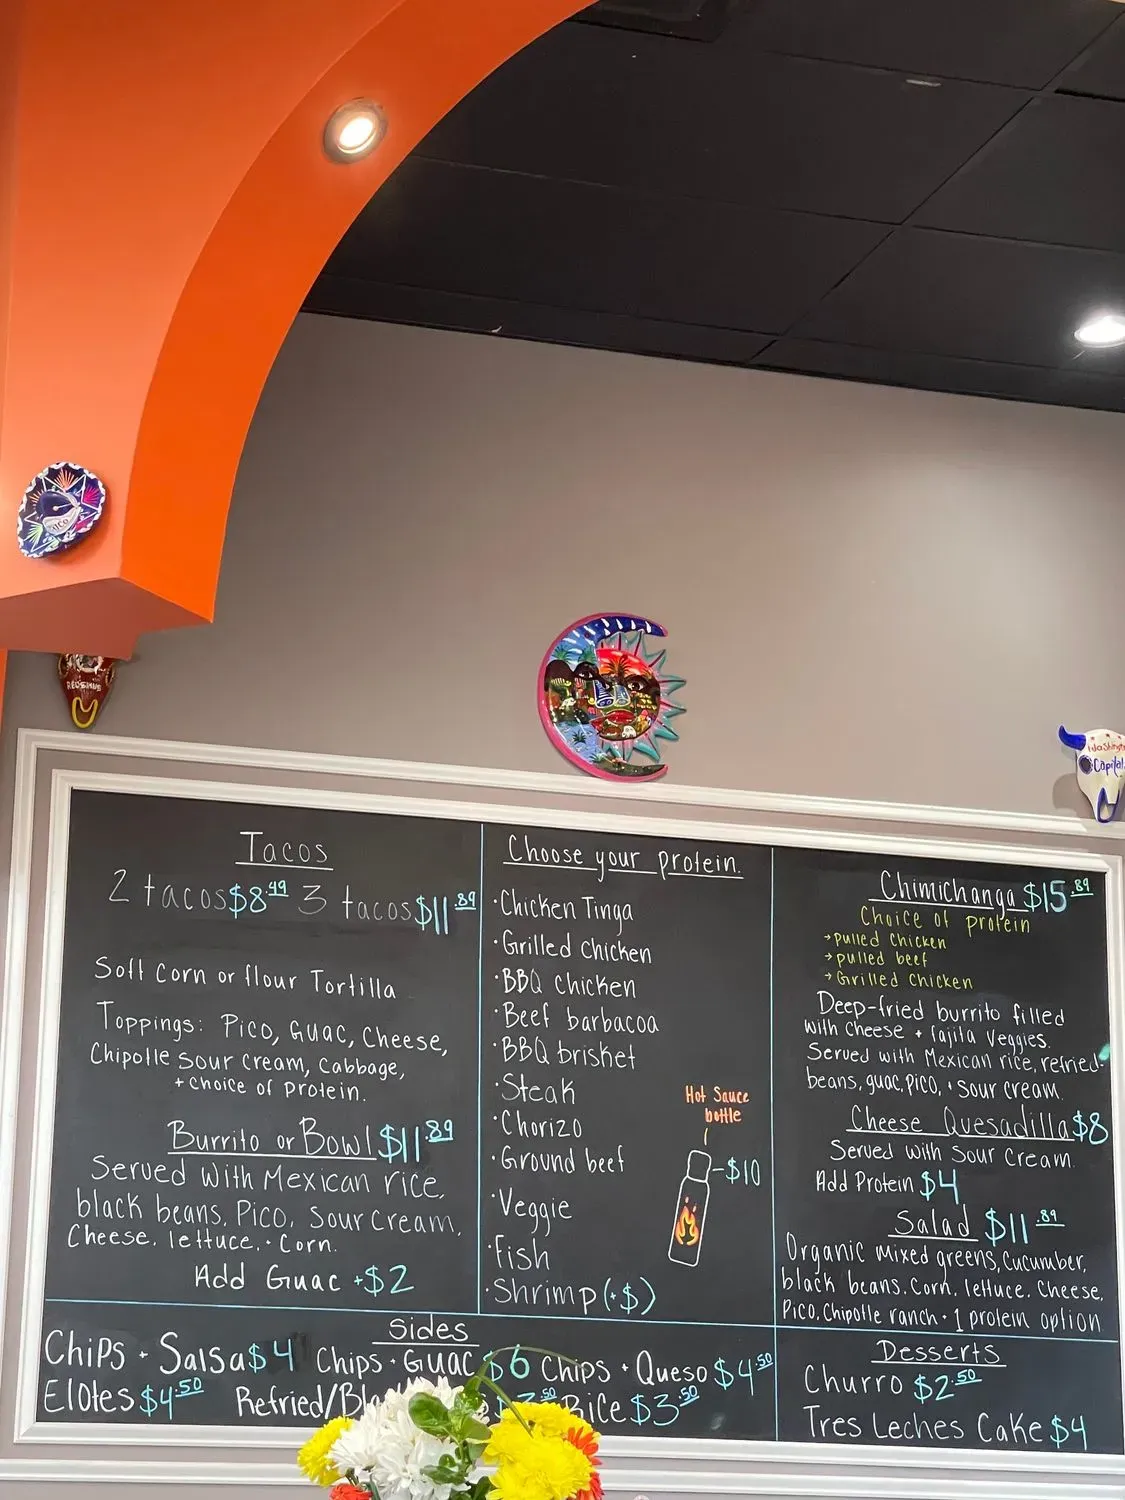 REDSKINS
Washingt
Capital
Tacos
2 tacos $8.49 3 tacos $11.89
Soft corn or flour Tortilla
Toppings: Pico, Guac, Cheese,
Chipotle sour cream, Cabbage,
+ choice of protein.
Burrito or Bowl $11.89
Served with Mexican rice,
black beans, Pico, Sour Cream,
Cheese, lettuce, + Corn.
Add Guac +$2
Choose your protein.
·Chicken Tinga
·Grilled Chicken
·BBQ chicken
·Beef barbacoa
·BBQ brisket
·Steak
·Chorizo
·Ground beef
·Veggie
·fish
·Shrimp (+$)
Hot Sauce
bottle
-$10
Chimichanga $15.89
Choice of protein
→pulled chicken
→pulled beef
→Grilled chicken
Deep-fried burrito filled
with cheese + fajita veggies.
Served with Mexican rice, refried
beans, guac, pico, + sour cream.
Cheese Quesadilla $8
Served with sour cream.
Add Protein $4
Salad $11.89
Organic mixed greens, Cucumber,
black beans, corn, lettuce, cheese,
Pico, Chipotle ranch + 1 protein option
Sides
Chips + Salsa $4 Chips + Guac $6 Chips + Queso $4.50
Elotes $4.50 Refried/Bla .50 Rice $3.50
Desserts
Churro $2.50
Tres Leches Cake $4